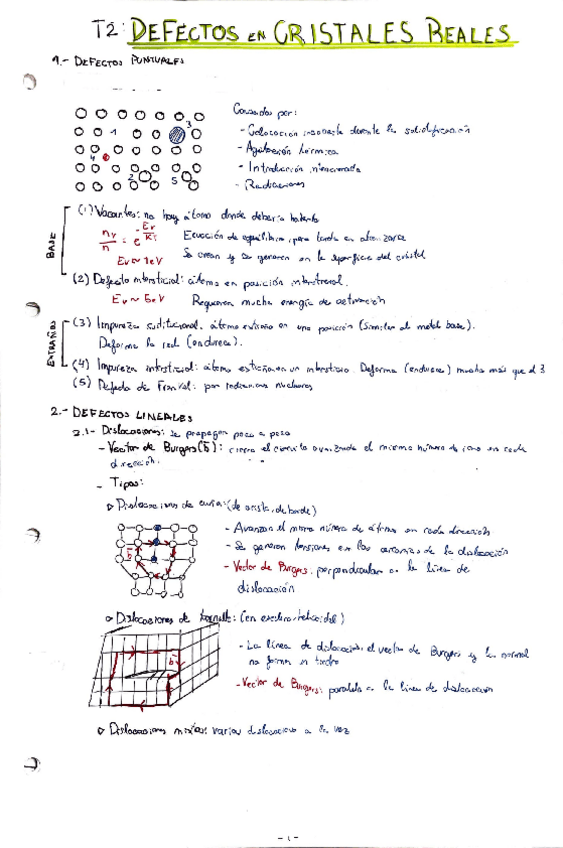 T2: DEFECTOS EN CRISTALES REALES
1.- DEFECTOS PUNTUALES
Causados por:
- Colocación incorrecta durante la solidificación
- Agitación térmica
- Introducción
- Radiaciones
1 2 3 4 5
BASE
(1) Vacantes: no hay átomo donde debería haberlo
nv/n = e^-Ev/KT
Ecuación de equilibrio, pero tarda en alcanzarse
Ev ~ 1eV
Se crean y se generan en la superficie del cristal
(2) Defecto intersticial: átomo en posición intersticial.
Ev ~ 5eV
Requieren mucha energía de activación
EXTRAÑOS
(3) Impureza sustitucional: átomo extraño en una posición (similar al metal base).
Deforma la red (endurece).
(4) Impureza intersticial: átomo extraño en un intersticio. Deforma (endurece) mucho más que el 3
(5) Defecto de Frenkel: por nucleares
2.- DEFECTOS LINEALES
2.1- Dislocaciones: se propagan poco a poco
- Vector de Burgers (b): cierra el circuito avanzado el mismo número de en cada
dirección.
- Tipos:
Dislocaciones de cuña: (de arista, de borde)
- Avanzan el mismo número de átomos en cada dirección
- Se generan tensiones en las cercanías de la dislocación
- Vector de Burgers: perpendicular a la línea de
dislocación
b
Dislocaciones de tornillo: (en helicoidal)
b
- La línea de dislocación, el vector de Burgers y la normal
no forman un triedro
- Vector de Burgers: paralelo a la línea de dislocación
Dislocaciones mixtas: varias dislocaciones a la vez
- 1 -